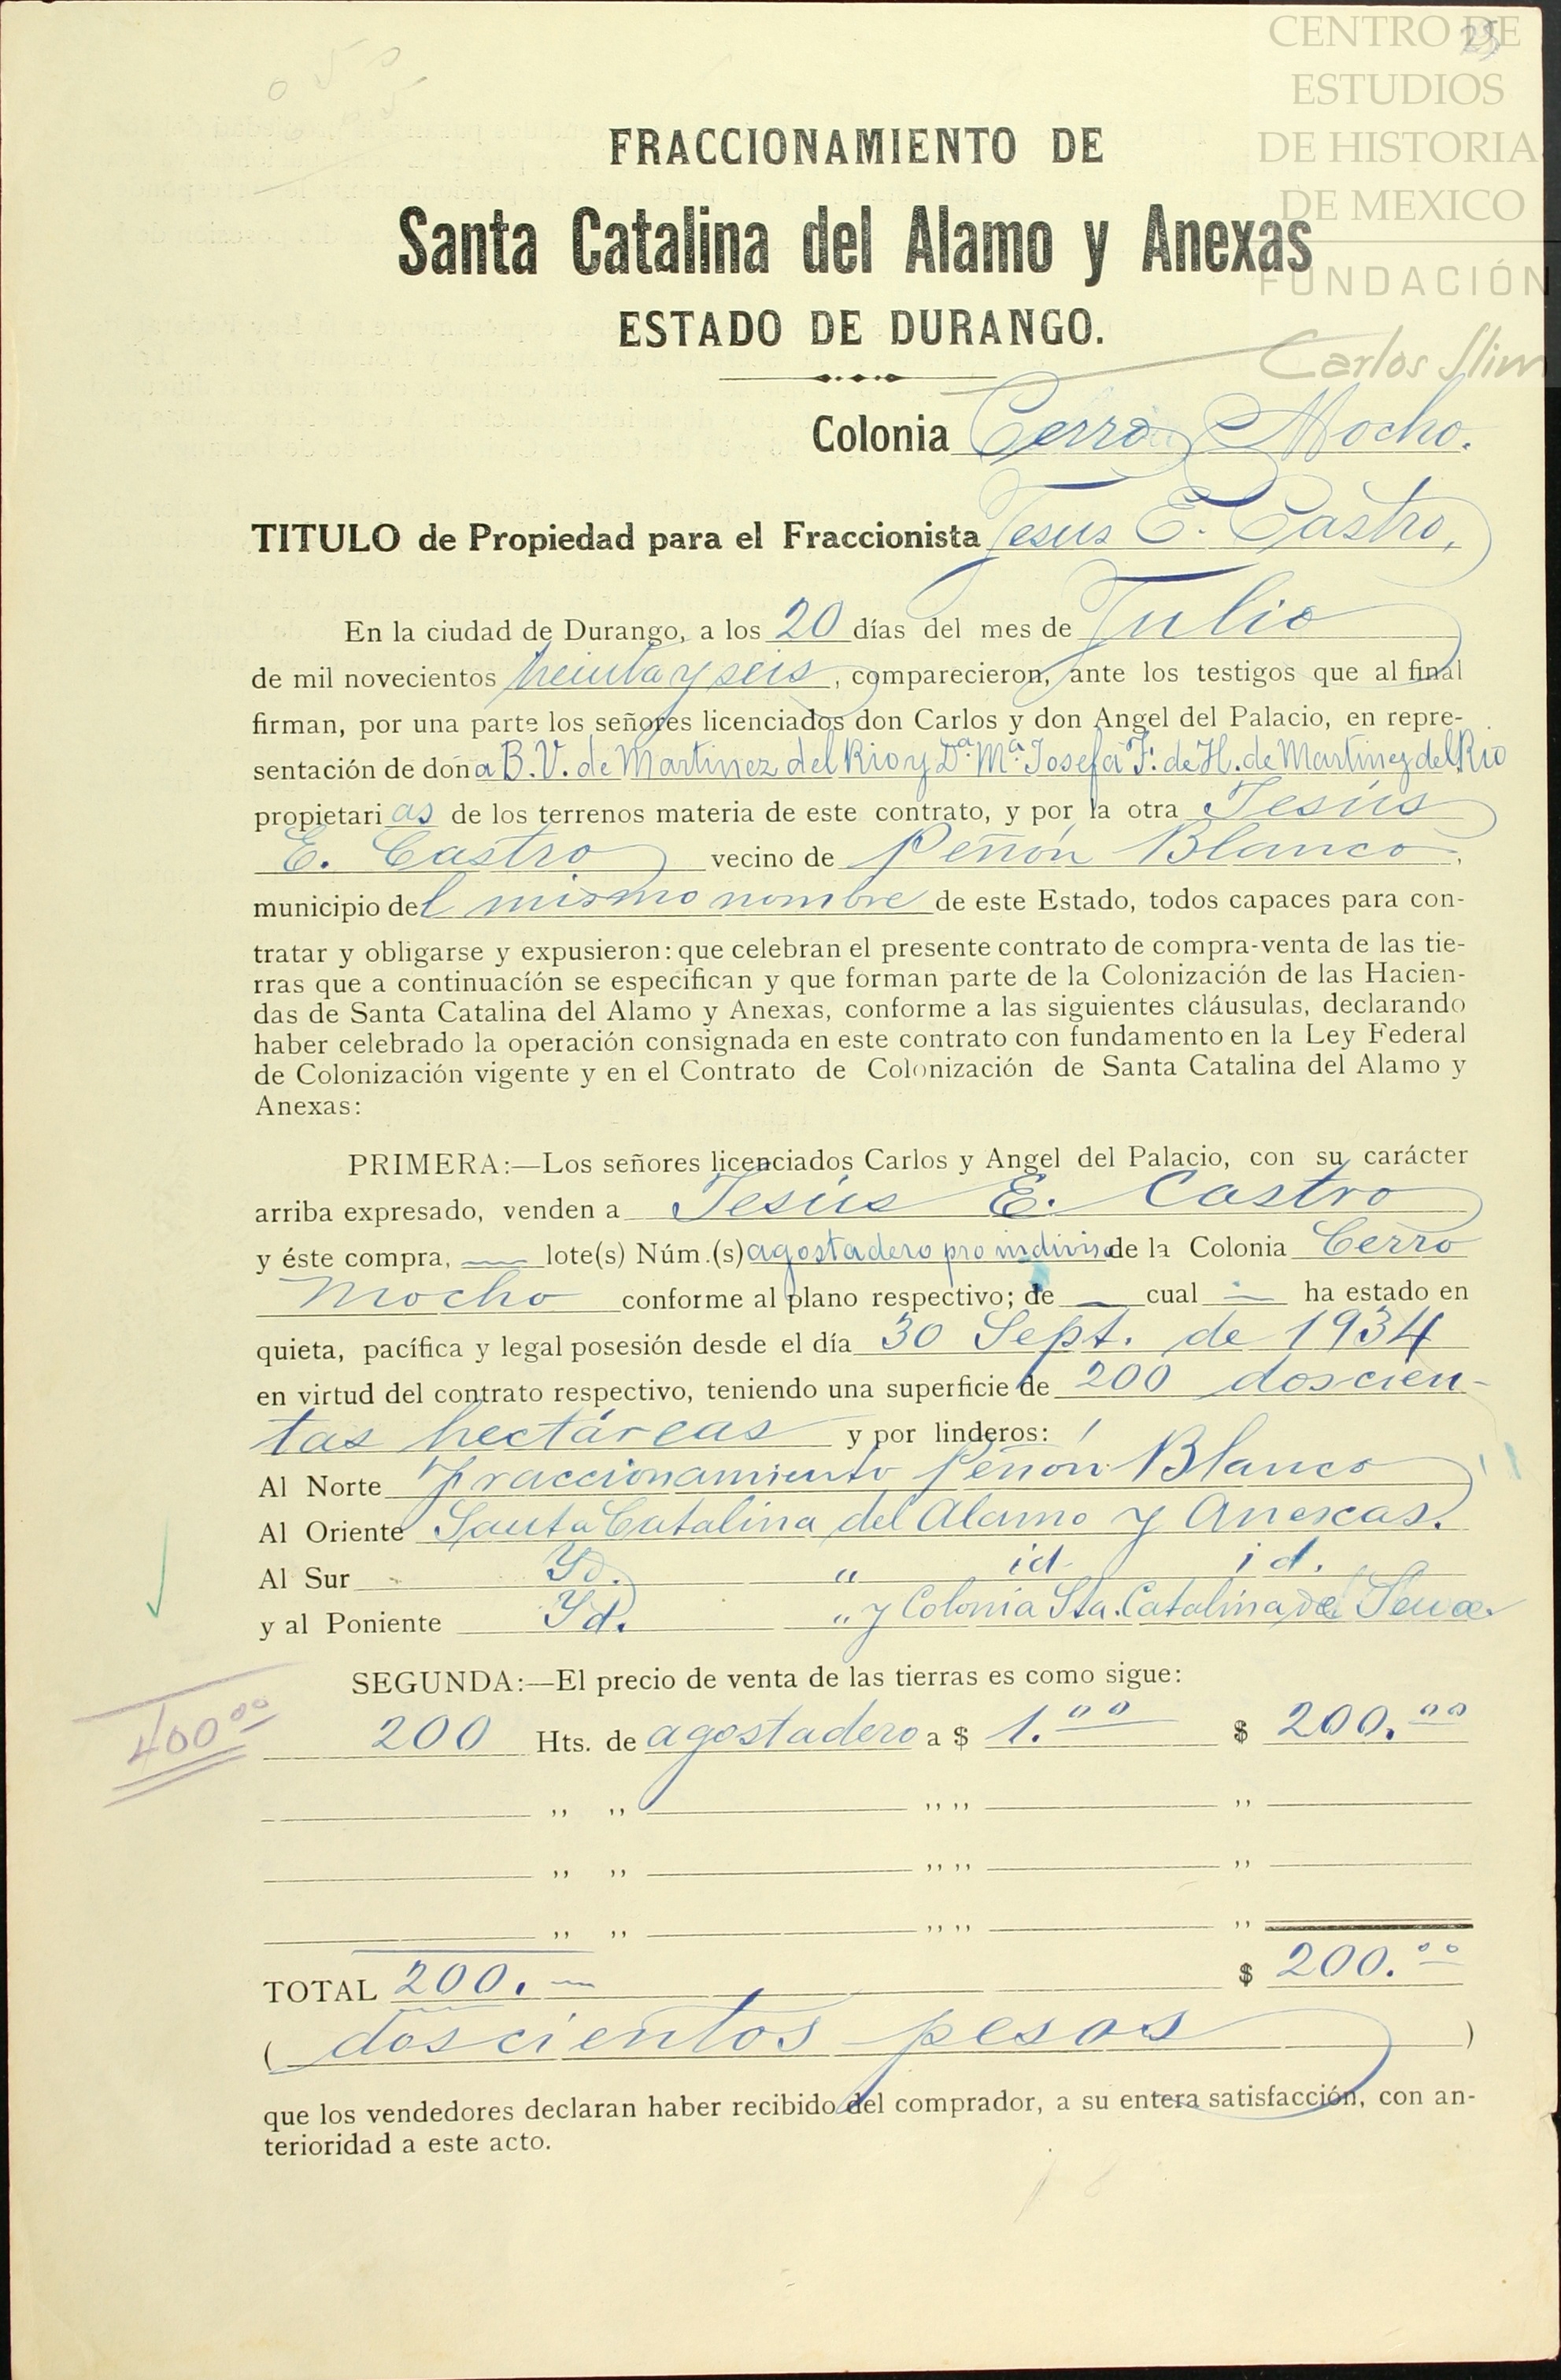 CENTRO DE
ESTUDIOS
DE HISTORIA
DE MEXICO
FUNDACIÓN
Carlos Slim
FRACCIONAMIENTO DE
Santa Catalina del Alamo y Anexas
ESTADO DE DURANGO.
Colonia Cerro Mocho.
TITULO de Propiedad para el Fraccionista Jesus E. Castro,
En la ciudad de Durango, a los 20 días del mes de Julio
de mil novecientos treinta y seis, comparecieron, ante los testigos que al final
firman, por una parte los señores licenciados don Carlos y don Angel del Palacio, en repre-
sentación de doña B. V. de Martinez del Rio y Dª. Mª. Josefa F. de H. de Martinez del Rio
propietarias de los terrenos materia de este contrato, y por la otra Jesús
E. Castro vecino de Peñón Blanco,
municipio del mismo nombre de este Estado, todos capaces para con-
tratar y obligarse y expusieron: que celebran el presente contrato de compra-venta de las tie-
rras que a continuacíón se especifican y que forman parte de la Colonización de las Hacien-
das de Santa Catalina del Alamo y Anexas, conforme a las siguientes cláusulas, declarando
haber celebrado la operación consignada en este contrato con fundamento en la Ley Federal
de Colonización vigente y en el Contrato de Colonización de Santa Catalina del Alamo y
Anexas:
PRIMERA:—Los señores licenciados Carlos y Angel del Palacio, con su carácter
arriba expresado, venden a Jesús E. Castro
y éste compra, — lote(s) Núm.(s) agostadero pro indiviso de la Colonia Cerro
Mocho conforme al plano respectivo; de — cual — ha estado en
quieta, pacífica y legal posesión desde el día 30 Sept. de 1934
en virtud del contrato respectivo, teniendo una superficie de 200 doscien-
tas hectáreas y por linderos:
Al Norte Fraccionamiento Peñón Blanco
Al Oriente Santa Catalina del Alamo y Anexas.
Al Sur Yd. " id id.
y al Poniente Yd. " y Colonia Sta. Catalina de
SEGUNDA:—El precio de venta de las tierras es como sigue:
400.00
200 Hts. de agostadero a $ 1.00 $ 200.00
" " " " "
" " " " "
" " " " "
TOTAL 200.— $ 200.00
( doscientos pesos )
que los vendedores declaran haber recibido del comprador, a su entera satisfacción, con an-
terioridad a este acto.